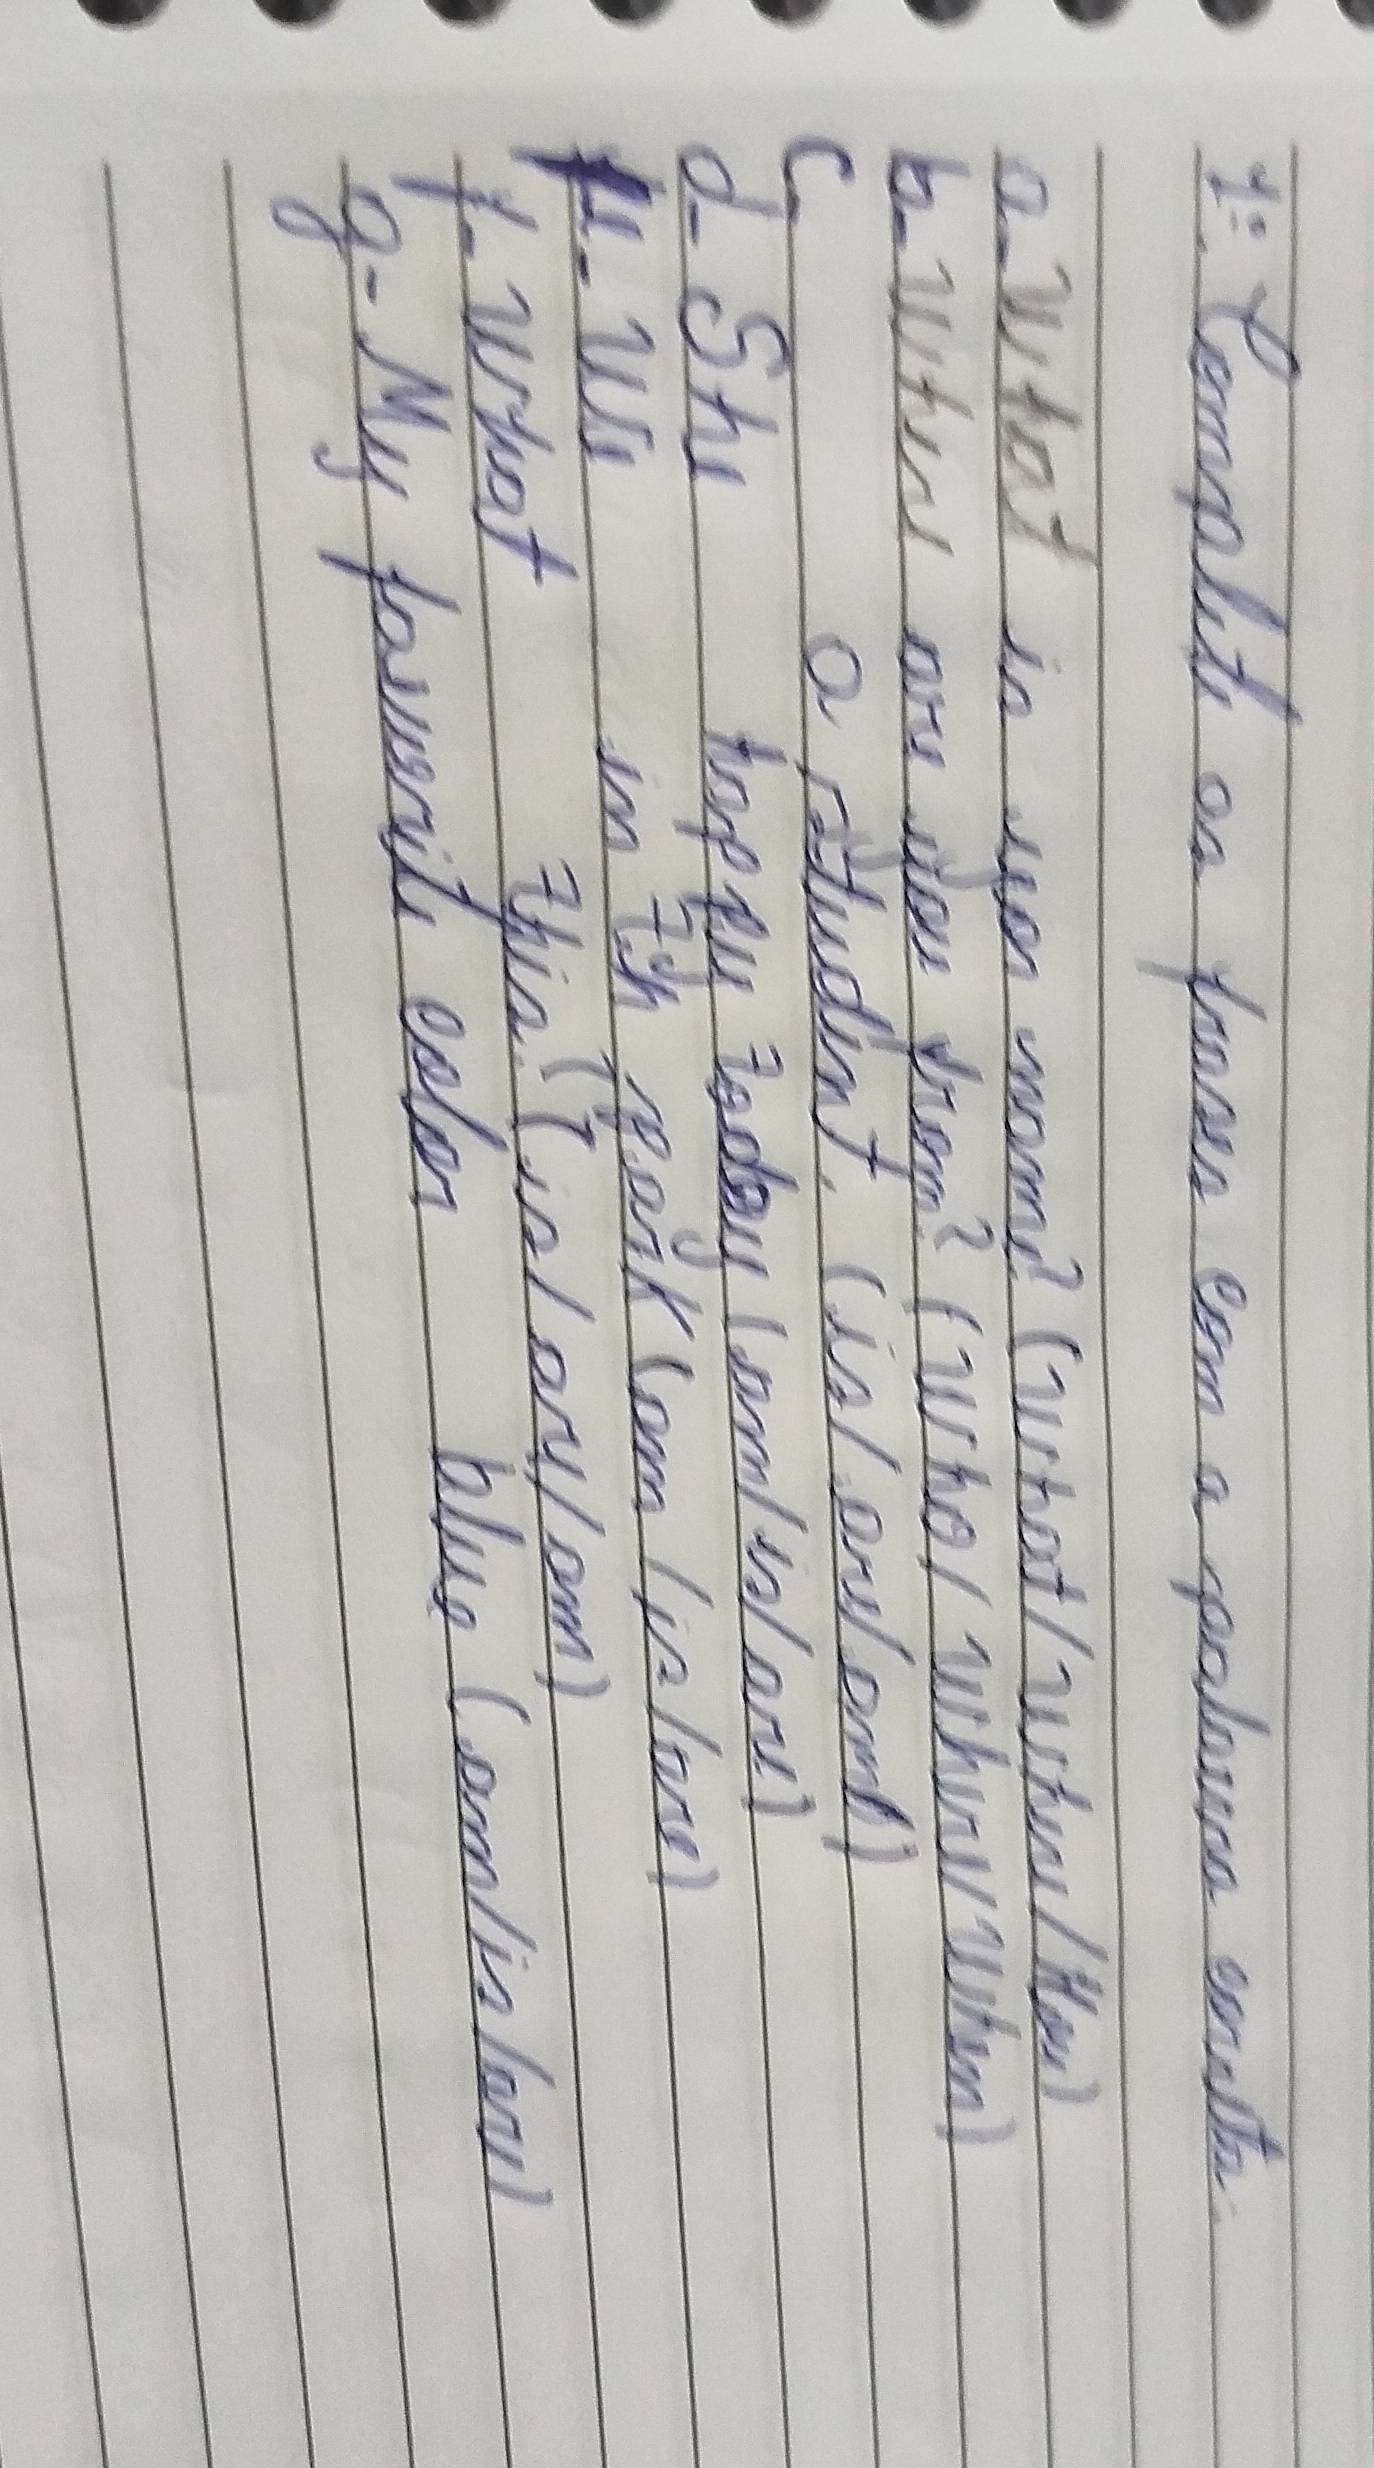 1: Complete as frases com a palavra correta.
a- What is your name? (What / Where / How)
b- Where are you from? (Who / Where / When)
c- a student. (is / are / am)
d- She happy today (am / is / are)
e- We in the park (am / is / are)
f- What this? (is / are / am)
g- My favorite color blue (am / is / are)